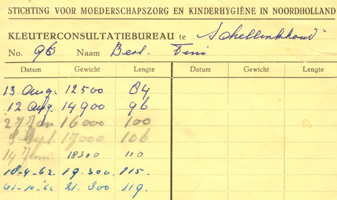 STICHTING VOOR MOEDERSCHAPSZORG EN KINDERHYGIËNE IN NOORDHOLLAND
KLEUTERCONSULTATIEBUREAU te Schellinkhout
No. 96 Naam Beol. Fini
Datum Gewicht Lengte Datum Gewicht Lengte
13 Aug. 12500 84
12 Aug. 14900 96
27 Jan 16000 100
Sept. 17000 106
14 Juni 18300 110
18-4-62. 19.300. 115.
-10-62. 21.800 119.